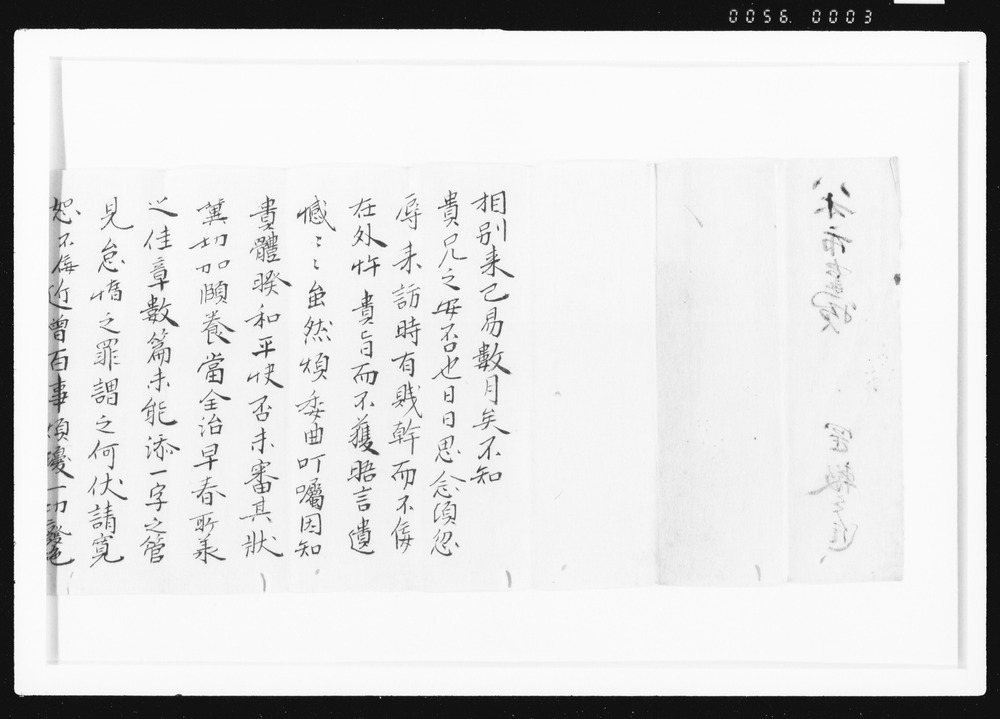 0056.0003
相别来已易數月矣不知
貴兄之安否也日日思念頃忽
辱来訪時有賤幹而不侮
在外忤貴旨而不獲晤言遺
憾〻〻虽然煩委曲叮囑因知
貴體暌和平快否未審其状
冀切加頤養當全治早春所羕
之佳章數篇未能添一字之管
見怠惰之罪謂之何伏請寛
恕不侮近曾百事煩擾一切